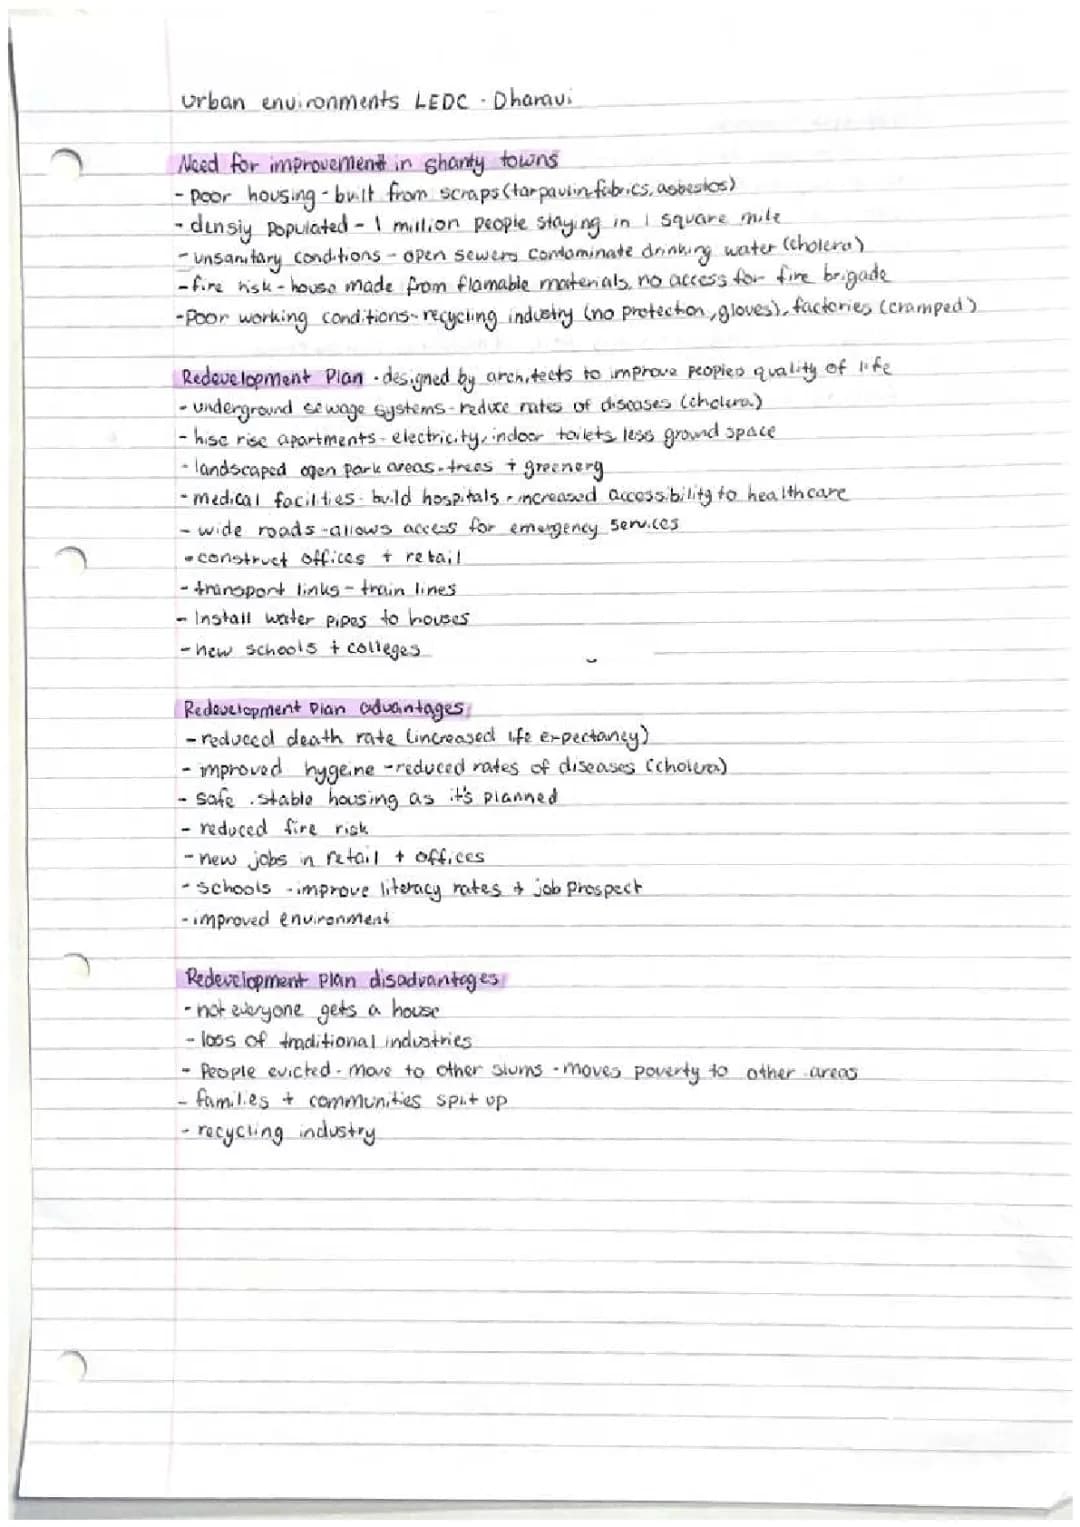 Urban environments LEDC - Dharavi
Need for improvement in shanty towns
- poor housing - built from scraps (tarpaulin fabrics, asbestos)
- densiy populated - 1 million people staying in 1 square mile
- unsanitary conditions - open sewers contaminate drinking water (cholera)
- fire risk - house made from flamable materials, no access for fire brigade
- Poor working conditions - recycling industry (no protection, gloves), factories (cramped)
Redevelopment Plan - designed by architects to improve peoples quality of life
- underground sewage systems - reduce rates of diseases (cholera)
- hise rise apartments - electricity, indoor toilets, less ground space
- landscaped open park areas - trees + greenery
- medical facilties - build hospitals - increased accessibility to healthcare
- wide roads - allows access for emergency services
- construct offices + retail
- transport links - train lines
- Install water pipes to houses
- new schools + colleges
Redevelopment Plan advantages
- reduced death rate (increased life expectancy)
- improved hygeine - reduced rates of diseases (cholera)
- safe, stable housing as it's planned
- reduced fire risk
- new jobs in retail + offices
- schools - improve literacy rates + job prospect
- improved environment
Redevelopment plan disadvantages
- not everyone gets a house
- loss of traditional industries
- People evicted - move to other slums - moves poverty to other areas
- families + communities split up
- recycling industry